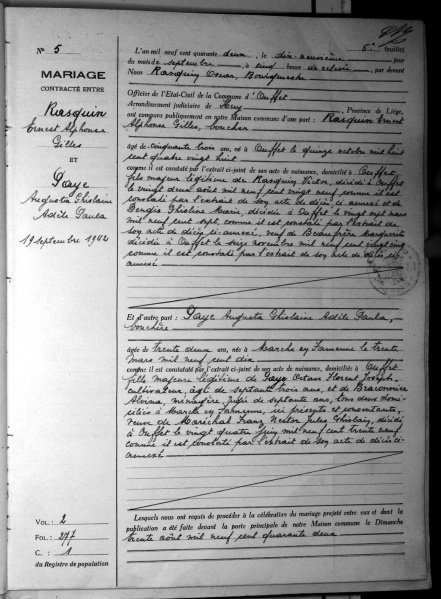 N° 5
MARIAGE
CONTRACTÉ ENTRE
Rasquin
Ernest Alphonse
Gilles
ET
Paye
Augusta Ghislaine
Adile Paula
19 septembre 1942
VOL: 2
FOL: 277
C. 1
du Registre de population
5me feuillet
L'an mil neuf cent quarante deux, le dix-neuvième jour
du mois de septembre à cinq heures de relevée, par devant
Nous Rasquin Oscar, Bourgmestre
Officier de l'Etat-Civil de la Commune d'Ouffet
Arrondissement judiciaire de Huy, Province de Liège,
ont comparu publiquement en notre Maison commune d'une part : Rasquin Ernest
Alphonse Gilles, boucher
âgé de cinquante trois ans, né à Ouffet le quinze octobre mil huit
cent quatre vingt huit
comme il est constaté par l'extrait ci-joint de son acte de naissance, domicilié à Ouffet
fils majeur légitime de Rasquin Victor, décédé à Ouffet
le vingt deux août mil neuf cent vingt neuf comme il est
constaté par l'extrait de son acte de décès ci-annexé et de
Ghislaine Marie, décédée à Ouffet le vingt sept mars
mil neuf cent sept comme il est constaté par l'extrait de
son acte de décès ci-annexé, veuf de Beaufrère Marguerite
décédée à Ouffet le seize novembre mil neuf cent vingt cinq
comme il est constaté par l'extrait de son acte de décès ci-
annexé
Et d'autre part : Paye Augusta Ghislaine Adile Paula,
bouchère
âgée de trente deux ans, née à Marche en Famenne le trente
mars mil neuf cent dix
comme il est constaté par l'extrait ci-joint de son acte de naissance, domiciliée à Ouffet
fille majeure légitime de Paye Octave Florent Joseph,
cultivateur, âgé de septante trois ans, et de
Alvina, ménagère, âgée de septante ans, tous deux domi-
ciliés à Marche en Famenne, ici présents et consentants,
veuve de Maréchal Franz Nestor Jules Ghislain, décédé
à Ouffet le vingt quatre juin mil neuf cent trente neuf
comme il est constaté par l'extrait de son acte de décès ci-
annexé
Lesquels nous ont requis de procéder à la célébration du mariage projeté entre eux et dont la
publication a été faite devant la porte principale de notre Maison commune le Dimanche
trente août mil neuf cent quarante deux